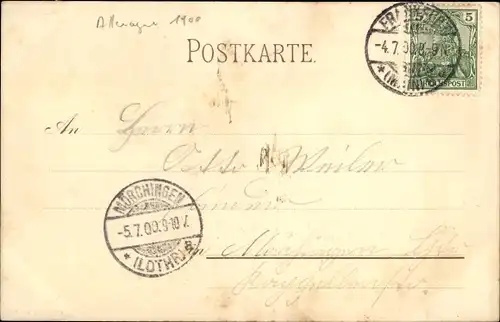 Allemagne 1900
POSTKARTE.
FRANKFURT
-4.7.00.8-9N.
*(MAIN)
5
REICHSPOST
An Herrn
Otto Weiler
MÖRCHINGEN
-5.7.00.9-10V.
*(LOTHR)a.
in Mörchingen